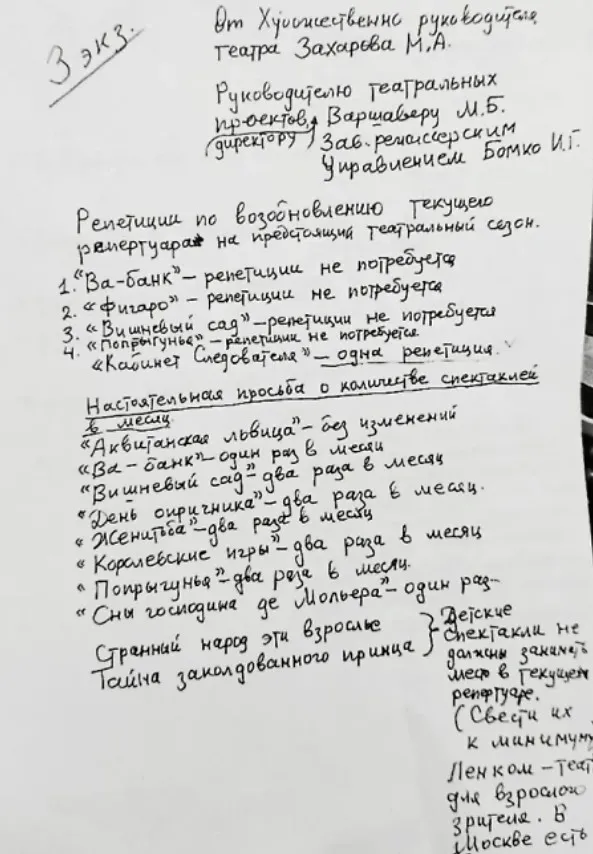 3 экз.
От Художественно руководителя
театра Захарова М.А.
Руководителю театральных
проектов, Варшаверу М.Б.
(директору) Зав. режиссерским
Управлением Бомко И.Г.
Репетиции по возобновлению текущего
репертуара на предстоящий театральный сезон.
1. "Ва-банк" – репетиции не потребуется
2. "Фигаро" – репетиции не потребуется
3. "Вишневый сад" – репетиции не потребуется
4. "Попрыгунья" – репетиции не потребуется
"Кабинет Следователя" – одна репетиция.
Настоятельная просьба о количестве спектаклей
в месяц
"Аквитанская львица" – без изменений
"Ва-банк" – один раз в месяц
"Вишневый сад" – два раза в месяц
"День опричника" – два раза в месяц.
"Женитьба" – два раза в месяц
"Королевские игры" – два раза в месяц
"Попрыгунья" – два раза в месяц.
"Сны господина де Мольера" – один раз
Странный народ эти взрослые
Тайна заколдованного принца
Детские
спектакли не
должны занимать
место в текущем
репертуаре.
(Свести их
к минимуму
Ленком – теат
для взрослого
зрителя. В
Москве есть